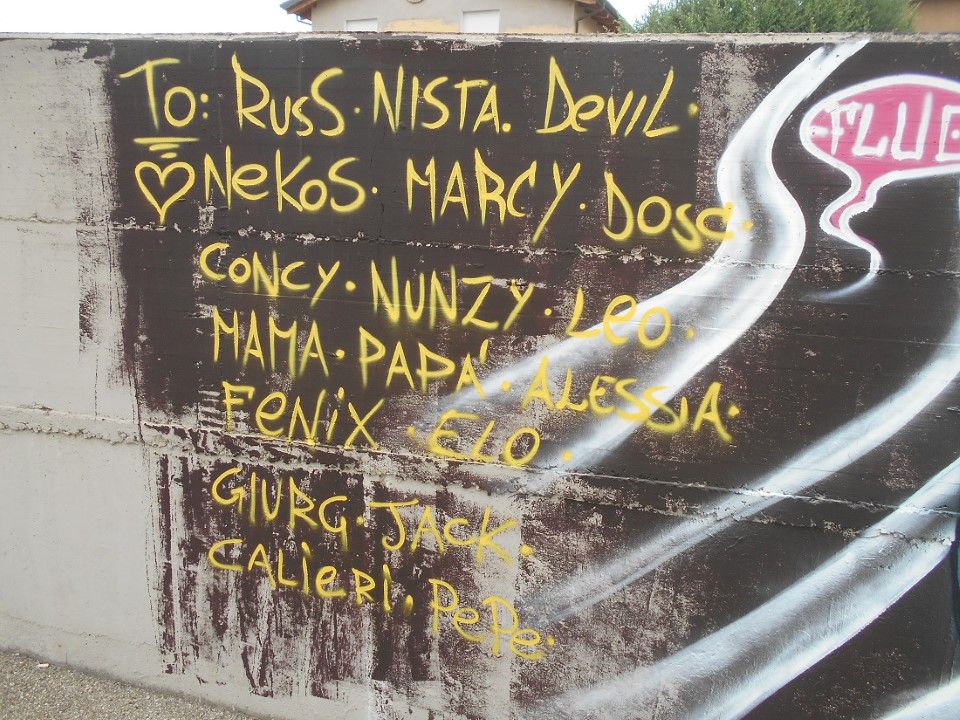 To: RusS. NISTA. DeviL.
♡ NeKoS. MARCY. Dosc.
CONCY. NUNZY. Leo.
MAMA. PAPA'. ALESSIA.
FeNiX. ELO.
GIURG. JACK.
CALieRi. PePe.